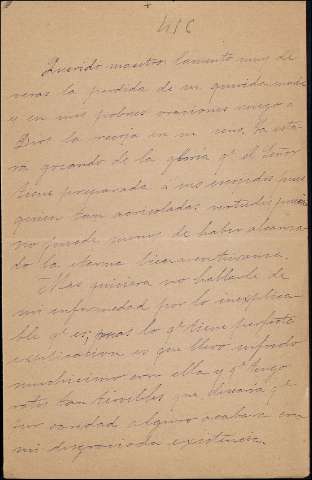 415
Querido maestro: lamento muy de
veras la perdida de su querida madre
y en mis pobres oraciones ruego a
Dios la recoja en su seno, ya esta-
ra gozando de la gloria qe el Señor
tiene preparada a sus escojidos pues
quien tan acrisoladas virtudes poseia
no puede menos de haber alcanza-
do la eterna bienaventuranza.
Mas quisiera no hablarle de
mi enfermedad por lo inexplica-
ble qe es; mas lo qe tiene perfecta
explicacion es que llevo sufrido
muchisimo con ella y qe tengo
ratos tan terribles que desearia qe
por caridad alguien acabara con
mi desgraciada existencia.